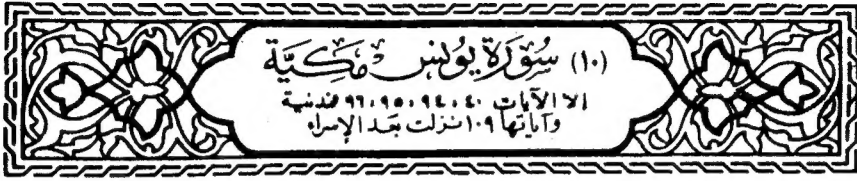 (١٠) سُورَة يُونس مَكيَّة
إلا الآيات ٤٠، ٩٤، ٩٥، ٩٦ فمدنية
وآياتها ١٠٩ نزلت بعد الإسراء